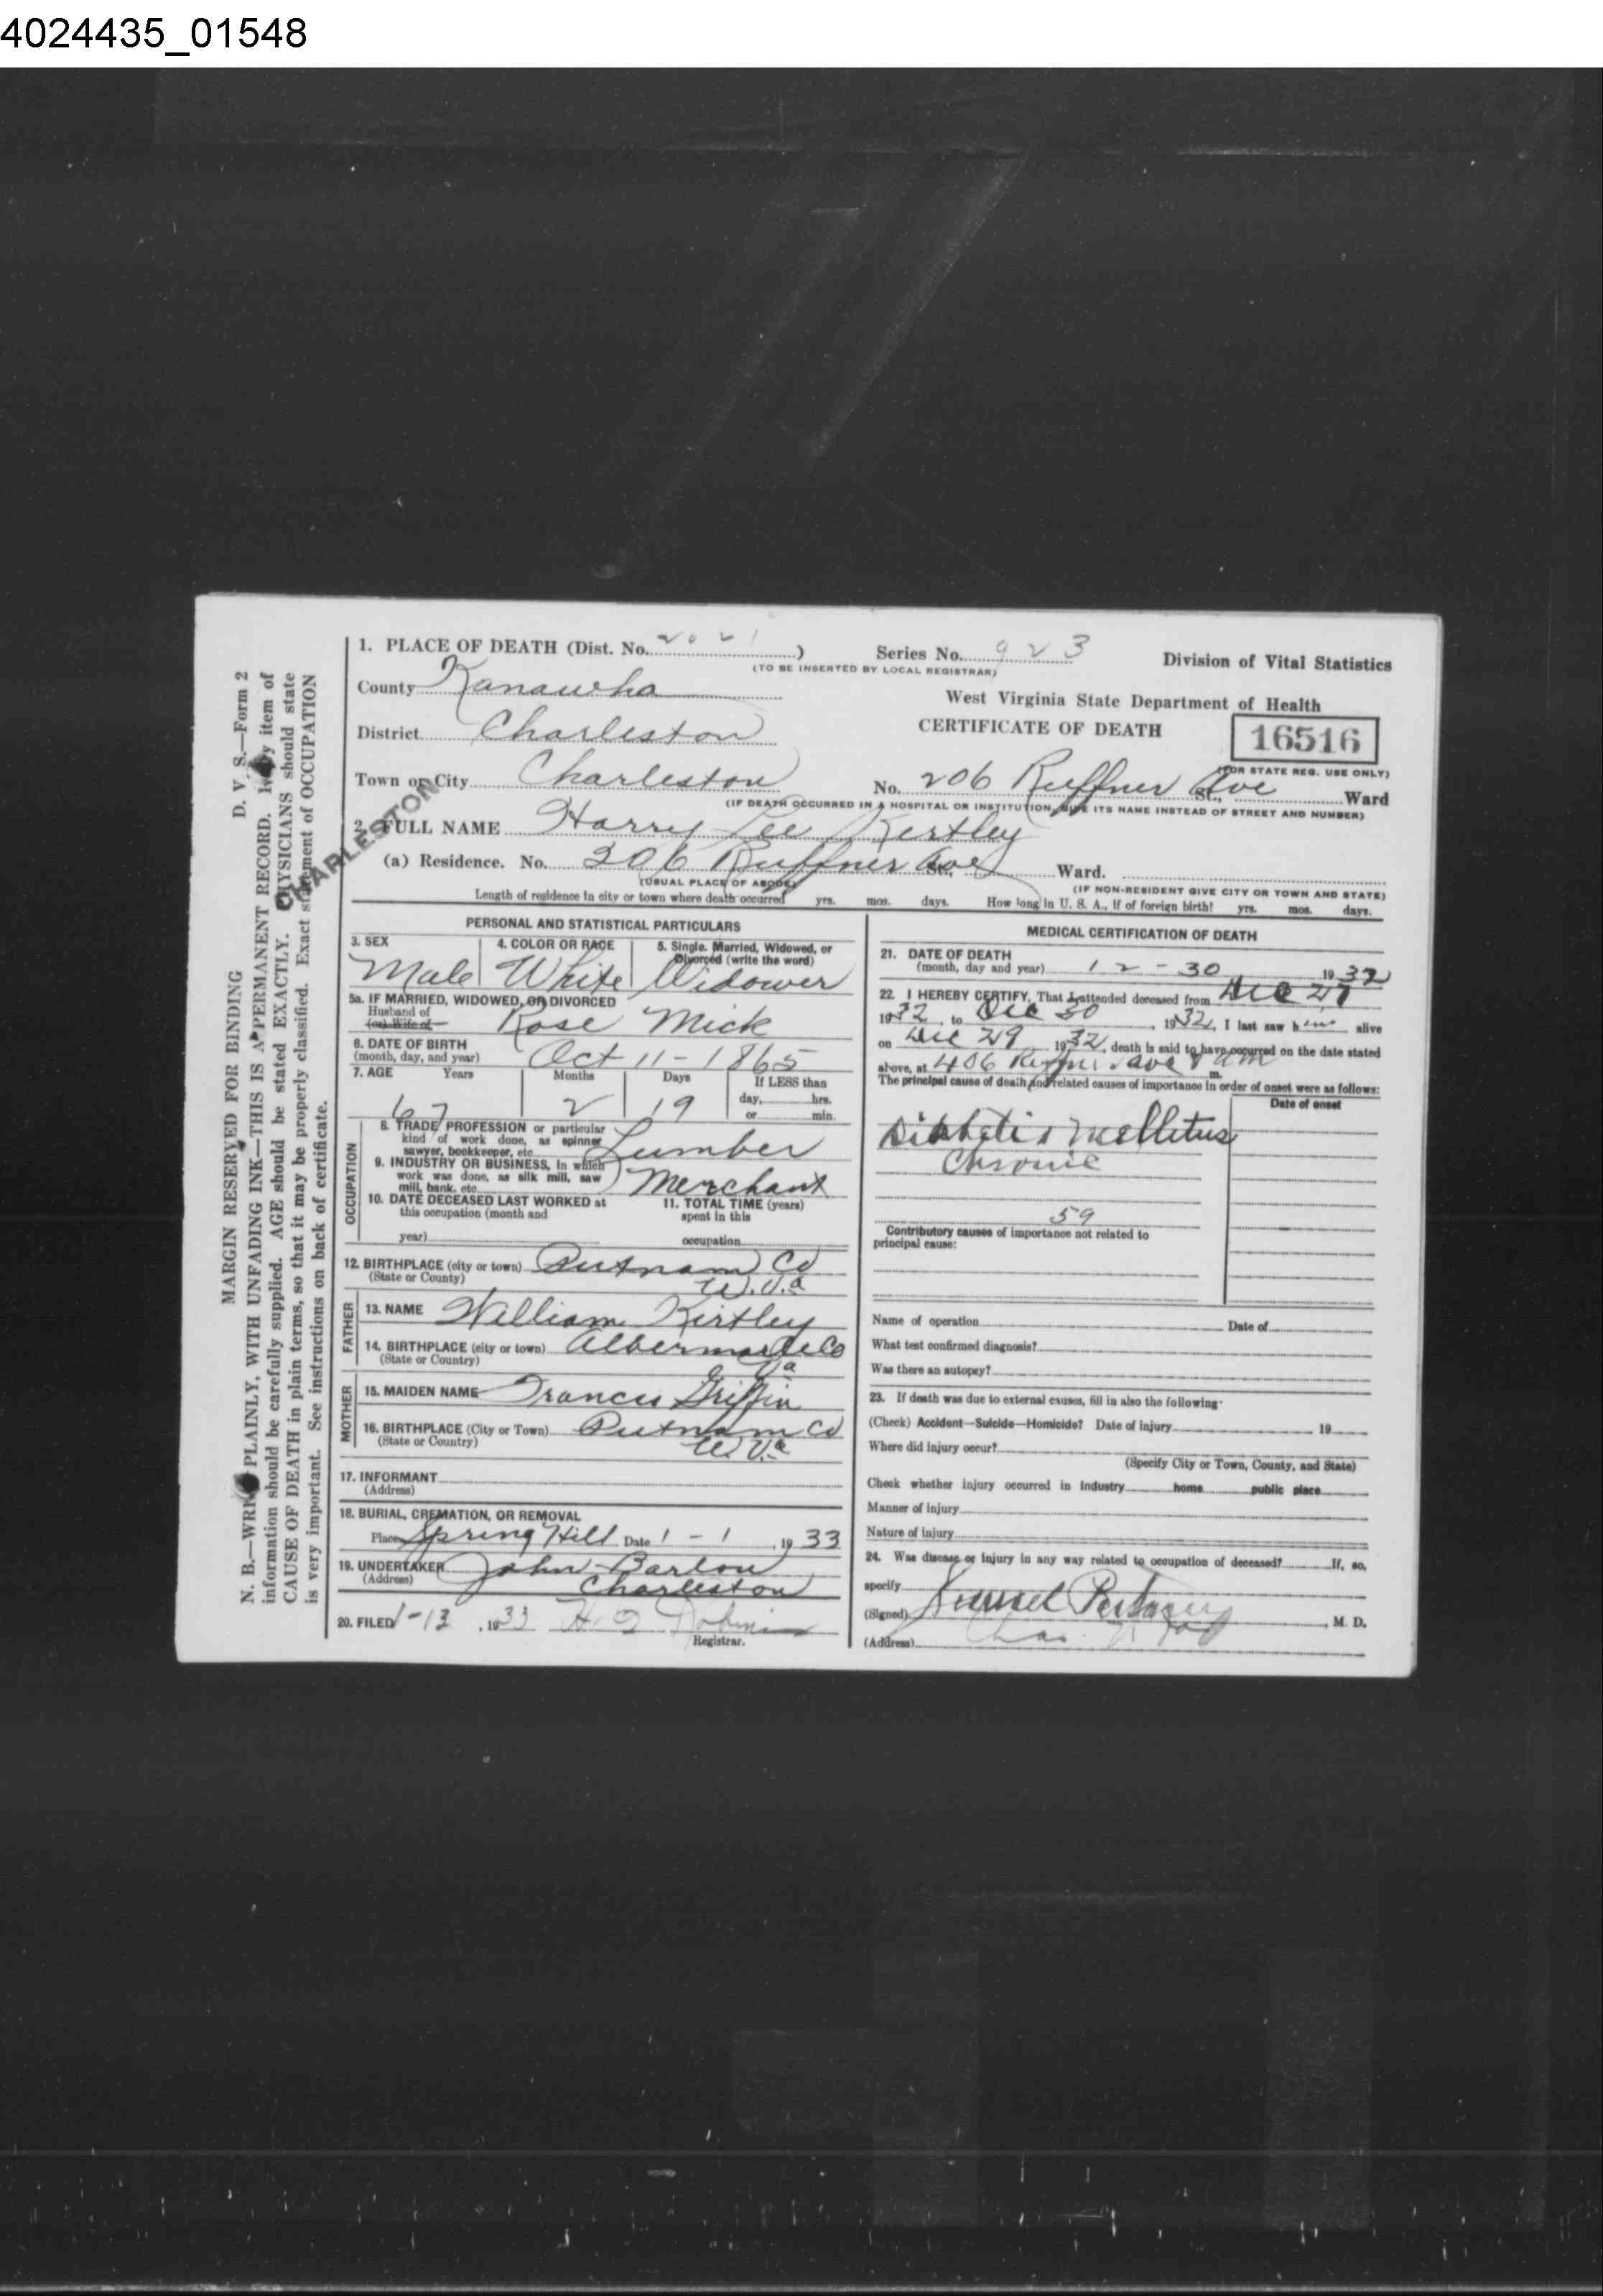 4024435_01548
MARGIN RESERVED FOR BINDING D. V. S.—Form 2
N. B.—WRITE PLAINLY, WITH UNFADING INK—THIS IS A PERMANENT RECORD. Every item of
information should be carefully supplied. AGE should be stated EXACTLY. PHYSICIANS should state
CAUSE OF DEATH in plain terms, so that it may be properly classified. Exact statement of OCCUPATION
is very important. See instructions on back of certificate.
CHARLESTON
1. PLACE OF DEATH (Dist. No. 2021) Series No. 923 Division of Vital Statistics
(TO BE INSERTED BY LOCAL REGISTRAR)
County Kanawha West Virginia State Department of Health
District Charleston CERTIFICATE OF DEATH 16516
(FOR STATE REG. USE ONLY)
Town or City Charleston No. 206 Ruffner Ave St., Ward
(IF DEATH OCCURRED IN A HOSPITAL OR INSTITUTION, GIVE ITS NAME INSTEAD OF STREET AND NUMBER)
2. FULL NAME Harry Lee Kirtley
(a) Residence. No. 206 Ruffner Ave St., Ward.
(USUAL PLACE OF ABODE) (IF NON-RESIDENT GIVE CITY OR TOWN AND STATE)
Length of residence in city or town where death occurred yrs. mos. days. How long in U. S. A., if of foreign birth? yrs. mos. days.
PERSONAL AND STATISTICAL PARTICULARS
3. SEX 4. COLOR OR RACE 5. Single, Married, Widowed, or
Divorced (write the word)
Male White Widower
5a. IF MARRIED, WIDOWED, OR DIVORCED
Husband of
(or) Wife of Rose Mick
6. DATE OF BIRTH
(month, day, and year) Oct 11-1865
7. AGE Years Months Days If LESS than
day, hrs.
67 2 19 or min.
OCCUPATION
8. TRADE PROFESSION or particular
kind of work done, as spinner
sawyer, bookkeeper, etc. Lumber
9. INDUSTRY OR BUSINESS, in which
work was done, as silk mill, saw
mill, bank, etc. Merchant
10. DATE DECEASED LAST WORKED at 11. TOTAL TIME (years)
this occupation (month and spent in this
year) occupation
12. BIRTHPLACE (city or town) Putnam Co
(State or County) W.Va
FATHER
13. NAME William Kirtley
14. BIRTHPLACE (city or town) Albermarle Co
(State or Country) Va
MOTHER
15. MAIDEN NAME Frances Griffin
16. BIRTHPLACE (City or Town) Putnam Co
(State or Country) W Va
17. INFORMANT
(Address)
18. BURIAL, CREMATION, OR REMOVAL
Place Spring Hill Date 1-1, 1933
19. UNDERTAKER John Barlow
(Address) Charleston
20. FILED 1-13, 1933 H
Registrar.
MEDICAL CERTIFICATION OF DEATH
21. DATE OF DEATH
(month, day and year) 12-30 1932
22. I HEREBY CERTIFY, That I attended deceased from Dec 27
1932, to Dec 30, 1932, I last saw him alive
on Dec 29 1932, death is said to have occurred on the date stated
above, at 406 Ruffner ave am m.
The principal cause of death and related causes of importance in order of onset were as follows:
Date of onset
Diabetis Mellitus
Chronic
59
Contributory causes of importance not related to
principal cause:
Name of operation Date of
What test confirmed diagnosis?
Was there an autopsy?
23. If death was due to external causes, fill in also the following:
(Check) Accident—Suicide—Homicide? Date of injury 19
Where did injury occur?
(Specify City or Town, County, and State)
Check whether injury occurred in industry home public place
Manner of injury
Nature of injury
24. Was disease or injury in any way related to occupation of deceased? If, so,
specify
(Signed) , M. D.
(Address)